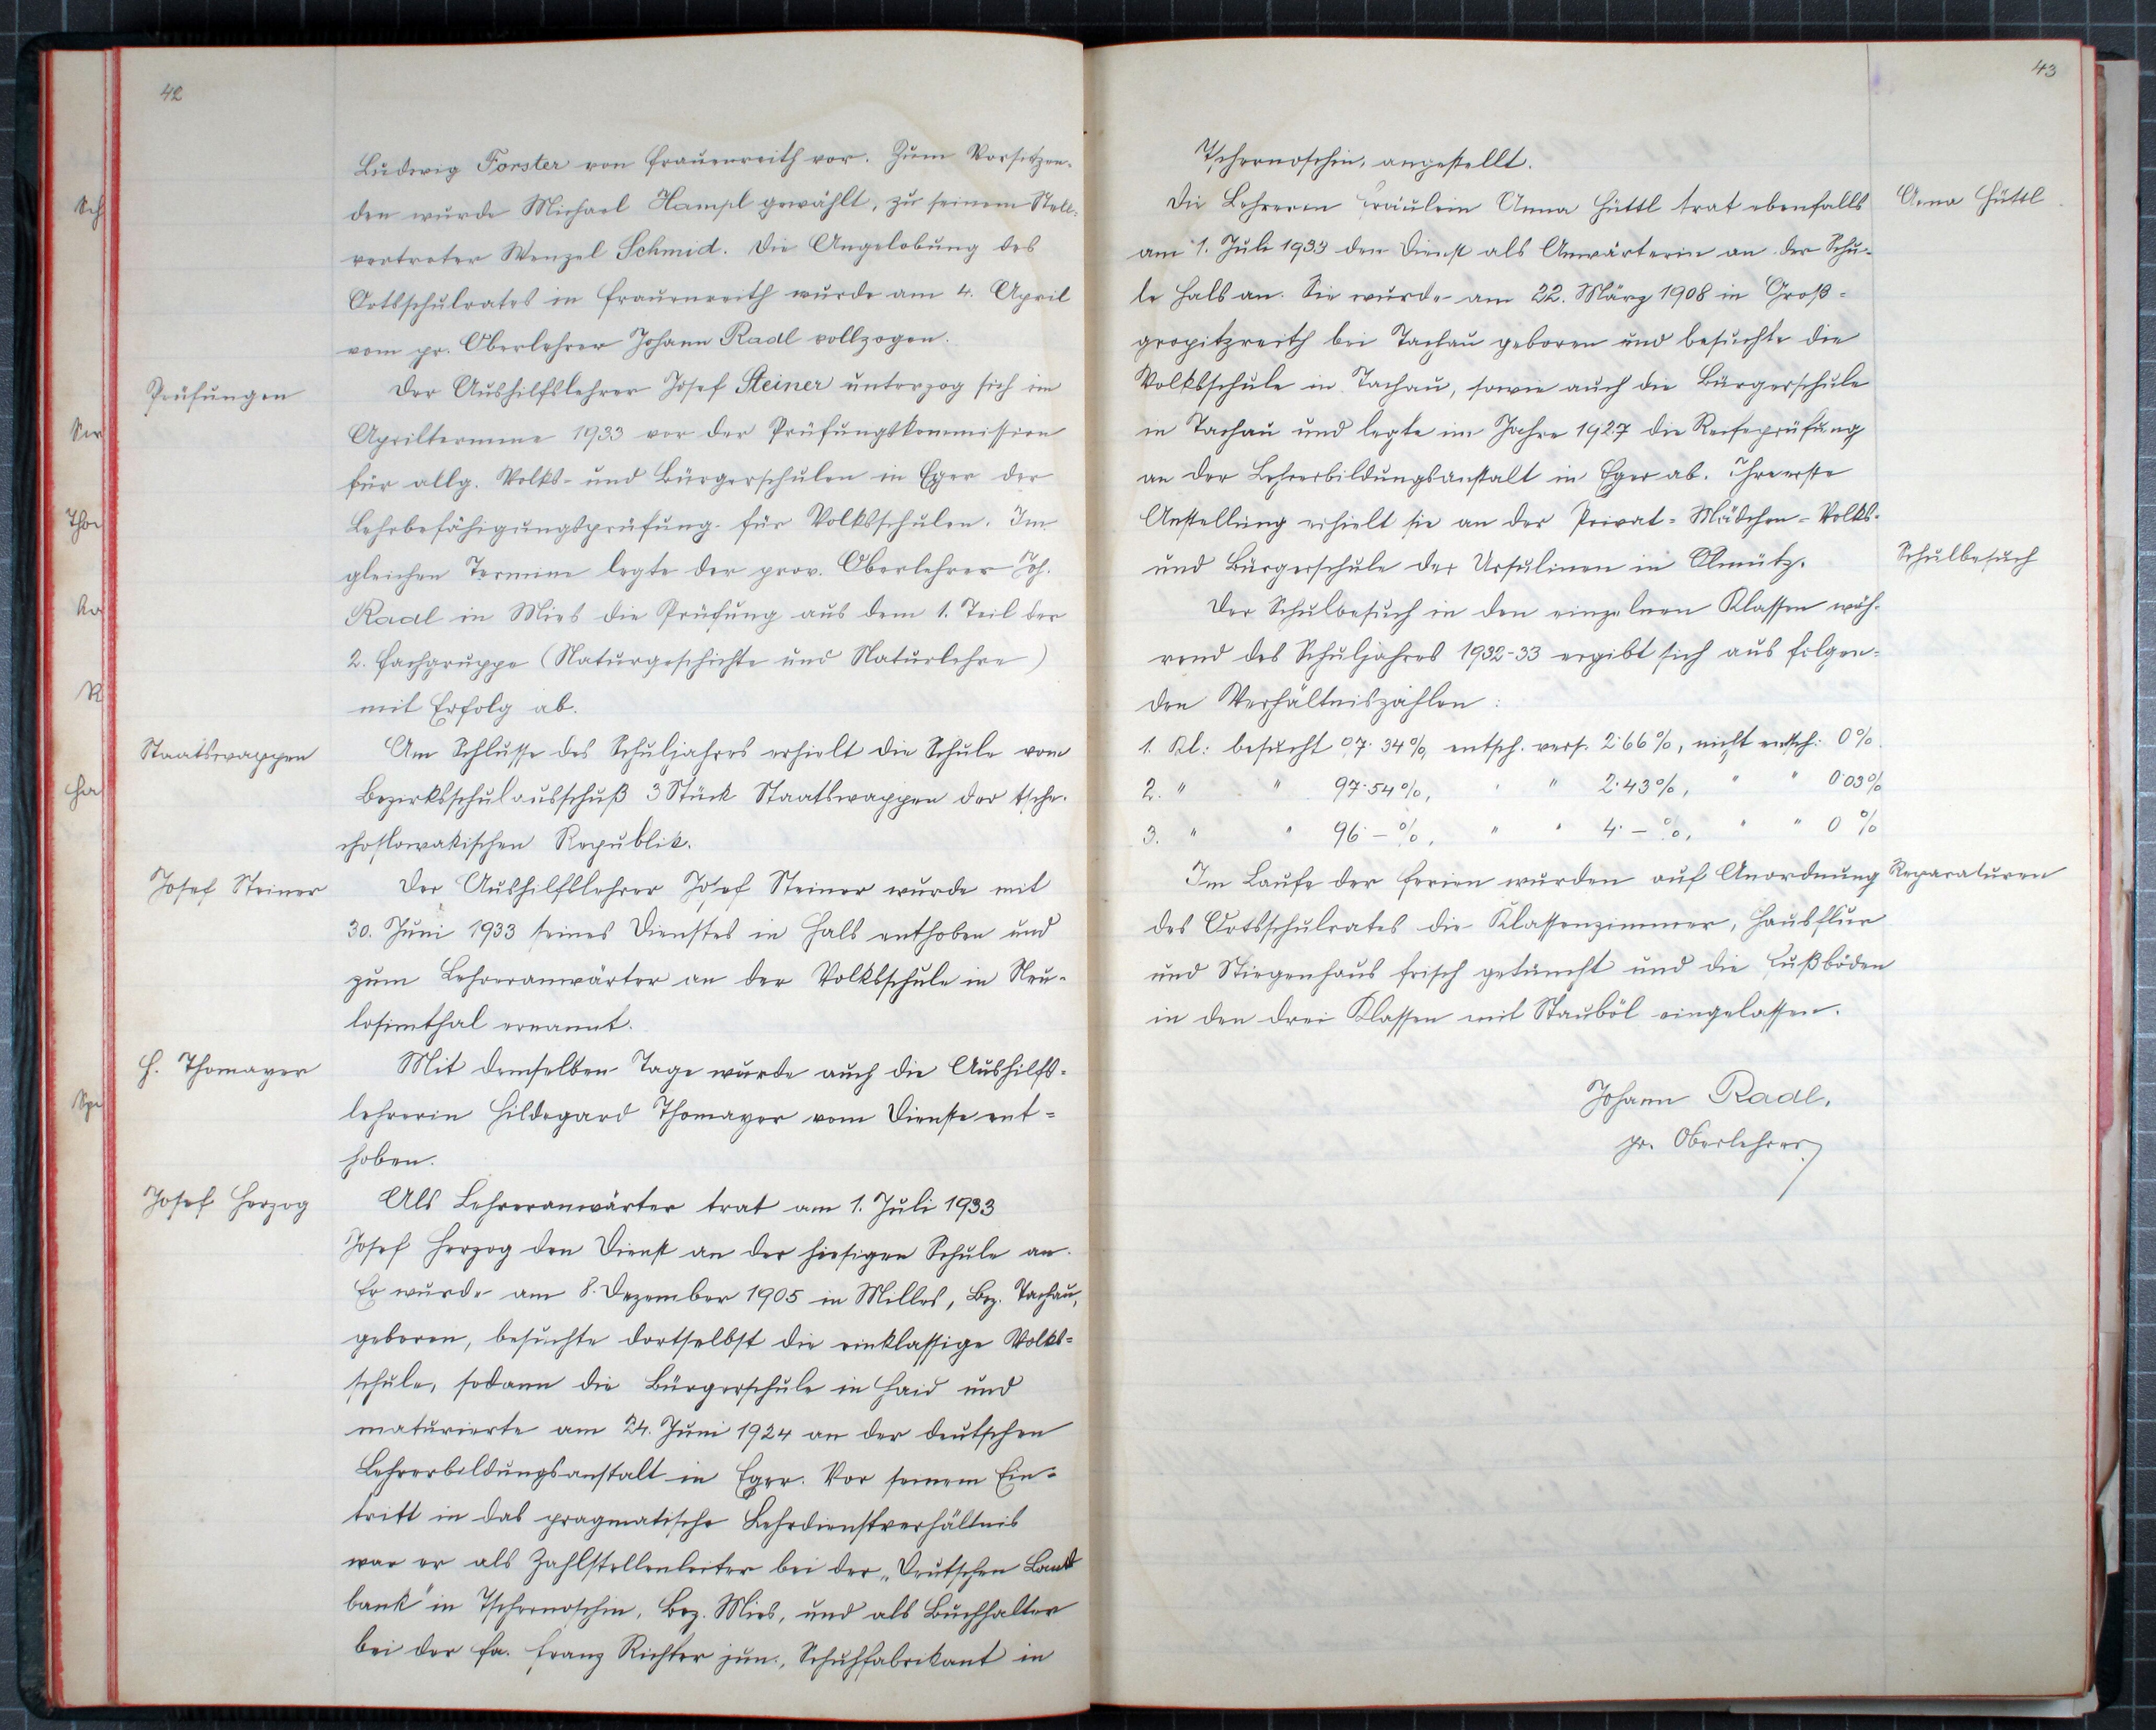 42
Ludwig Forster von Frauenreith vor. Zum Vorsitzen-
den wurde Michael Hampl gewählt, zu seinem Stell-
vertreter Wenzel Schmid. Die Angelobung des
Ortsschulrates in Frauenreith wurde am 4. April
vom pr. Oberlehrer Johann Radl vollzogen.
Prüfungen
Der Aushilfslehrer Josef Steiner unterzog sich im
Apriltermine 1933 vor der Prüfungskommission
für allg. Volks- und Bürgerschulen in Eger der
Lehrbefähigungsprüfung für Volksschulen. Im
gleichen Termine legte der prov. Oberlehrer Joh.
Radl in Mies die Prüfung aus dem 1. Teil der
2. Fachgruppe (Naturgeschichte und Naturlehre)
mit Erfolg ab.
Staatswappen
Am Schlusse des Schuljahres erhielt die Schule vom
Bezirksschulausschuß 3 Stück Staatswappen der tsche-
choslowakischen Republik.
Josef Steiner
Der Aushilfslehrer Josef Steiner wurde mit
30. Juni 1933 seines Dienstes in Hals enthoben und
zum Lehreranwärter an der Volksschule in Neu-
losimthal ernannt.
H. Thomayer
Mit demselben Tage wurde auch die Aushilfs-
lehrerin Hildegard Thomayer vom Dienste ent-
hoben.
Josef Herzog
Als Lehreranwärter trat am 1. Juli 1933
Josef Herzog den Dienst an der hiesigen Schule an.
Er wurde am 8. Dezember 1905 in Milles, Bez. Tachau,
geboren, besuchte dortselbst die einklassige Volks-
schule, sodann die Bürgerschule in Haid und
maturierte am 24. Juni 1924 an der deutschen
Lehrerbildungsanstalt in Eger. Vor seinem Ein-
tritt in das pragmatische Lehrdienstverhältnis
war er als Zahlstellenleiter bei der „Deutschen Land
bank" in Tschernoschin, Bez. Mies, und als Buchhalter
bei der Fa. Franz Richter jun., Schuhfabrikant in
43
Tschernoschin, angestellt.
Anna Hüttl
Die Lehrerin Fräulein Anna Hüttl trat ebenfalls
am 1. Juli 1933 den Dienst als Anwärterin an der Schu-
le Hals an. Sie wurde am 22. März 1908 in Groß-
gropitzreith bei Tachau geboren und besuchte die
Volksschule in Tachau, sowie auch die Bürgerschule
in Tachau und legte im Jahre 1927 die Reifeprüfung
an der Lehrerbildungsanstalt in Eger ab. Ihre erste
Anstellung erhielt sie an der Privat-Mädchen-Volks-
und Bürgerschule der Ursulinen in Olmütz.
Schulbesuch
Der Schulbesuch in den einzelnen Klassen wäh-
rend des Schuljahres 1932-33 ergibt sich aus folgen-
den Verhältniszahlen:
1. Kl.: besucht 97·34%, entsch. vers. 2·66%, nicht entsch: 0%.
2. " " 97·54%, " " 2·43%, " " 0·03%
3. " " 96·–%, " " 4·–%, " " 0%
Reparaturen
Im Laufe der Ferien wurden auf Anordnung
des Ortsschulrates die Klassenzimmer, Hausflur
und Stiegenhaus frisch getüncht und die Fußböden
in den drei Klassen mit Stauböl eingelassen.
Johann Radl,
pr. Oberlehrer.